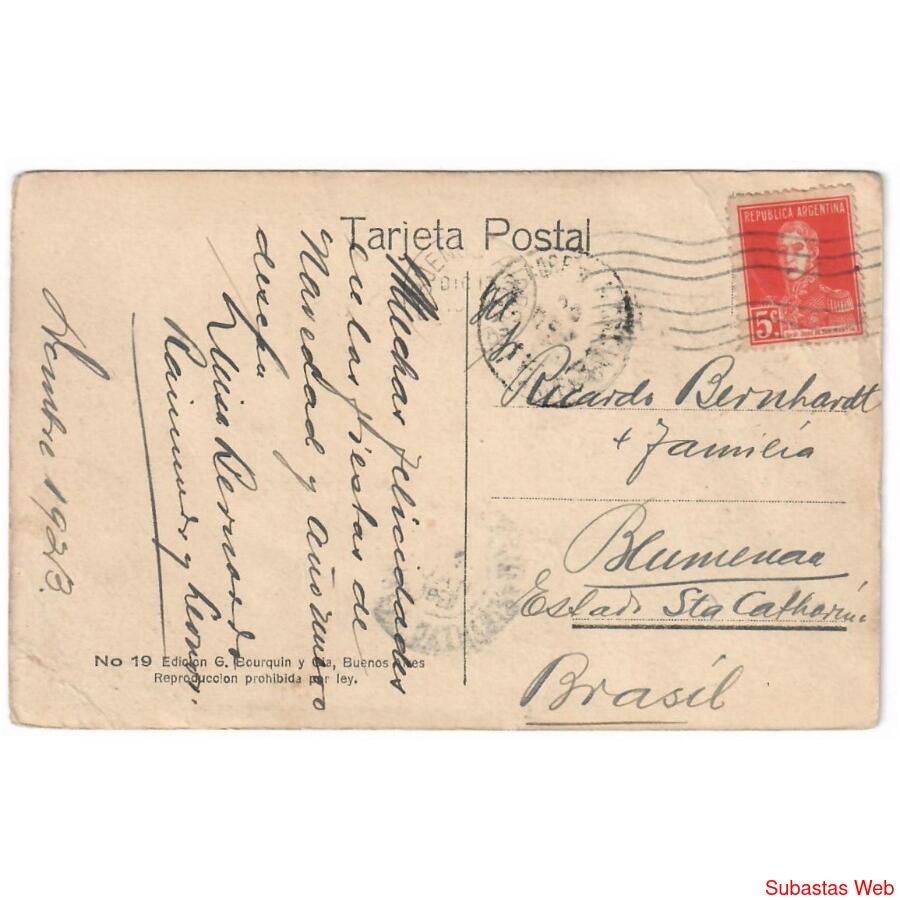 Tarjeta Postal
REPUBLICA ARGENTINA
5c.
Muchas felicidades
en las fiestas de
Navedad y Año nuevo
desean
Luisa Bernardo
Raimundo y Leonor.
1923.
Ricardo Bernhardt
+ Familia
Blumenau
Estado Sta Catharina
Brasil
No 19 Edicion G. Bourquin y Cia, Buenos Aires
Reproduccion prohibida por ley.
Subastas Web